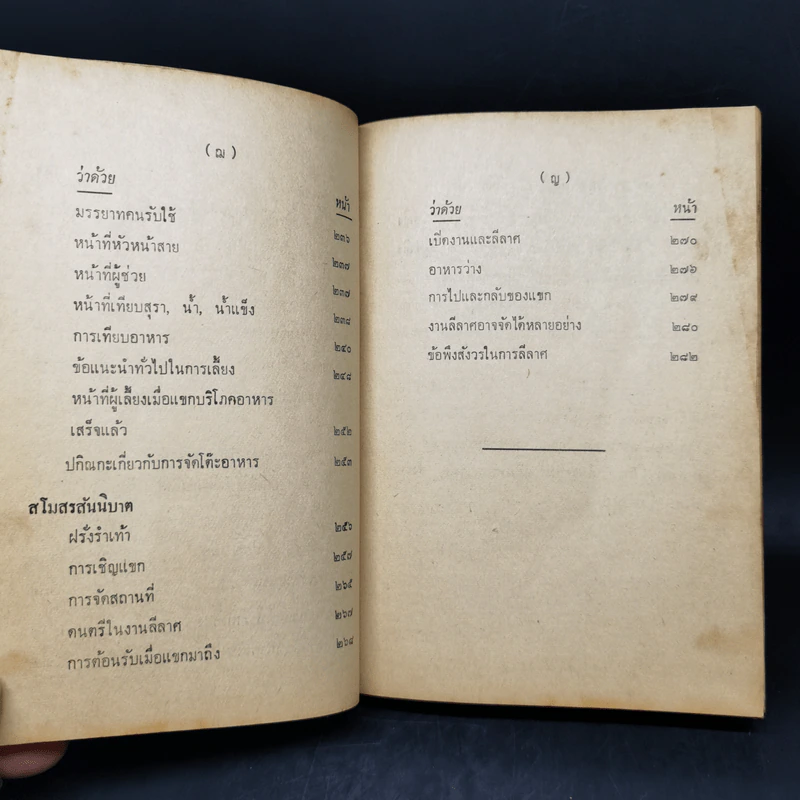 ( ฌ )
ว่าด้วย หน้า
มรรยาทคนรับใช้ ๒๓๖
หน้าที่หัวหน้าสาย ๒๓๗
หน้าที่ผู้ช่วย ๒๓๗
หน้าที่เทียบสุรา, น้ำ, น้ำแข็ง ๒๓๘
การเทียบอาหาร ๒๔๐
ข้อแนะนำทั่วไปในการเลี้ยง ๒๔๘
หน้าที่ผู้เลี้ยงเมื่อแขกบริโภคอาหาร
เสร็จแล้ว ๒๕๒
ปกิณกะเกี่ยวกับการจัดโต๊ะอาหาร ๒๕๓
สโมสรสันนิบาต
ฝรั่งรำเท้า ๒๕๖
การเชิญแขก ๒๕๗
การจัดสถานที่ ๒๖๕
ดนตรีในงานลีลาศ ๒๖๗
การต้อนรับเมื่อแขกมาถึง ๒๖๘
( ญ )
ว่าด้วย หน้า
เปิดงานและลีลาศ ๒๗๐
อาหารว่าง ๒๗๖
การไปและกลับของแขก ๒๗๙
งานลีลาศอาจจัดได้หลายอย่าง ๒๘๐
ข้อพึงสังวรในการลีลาศ ๒๘๒